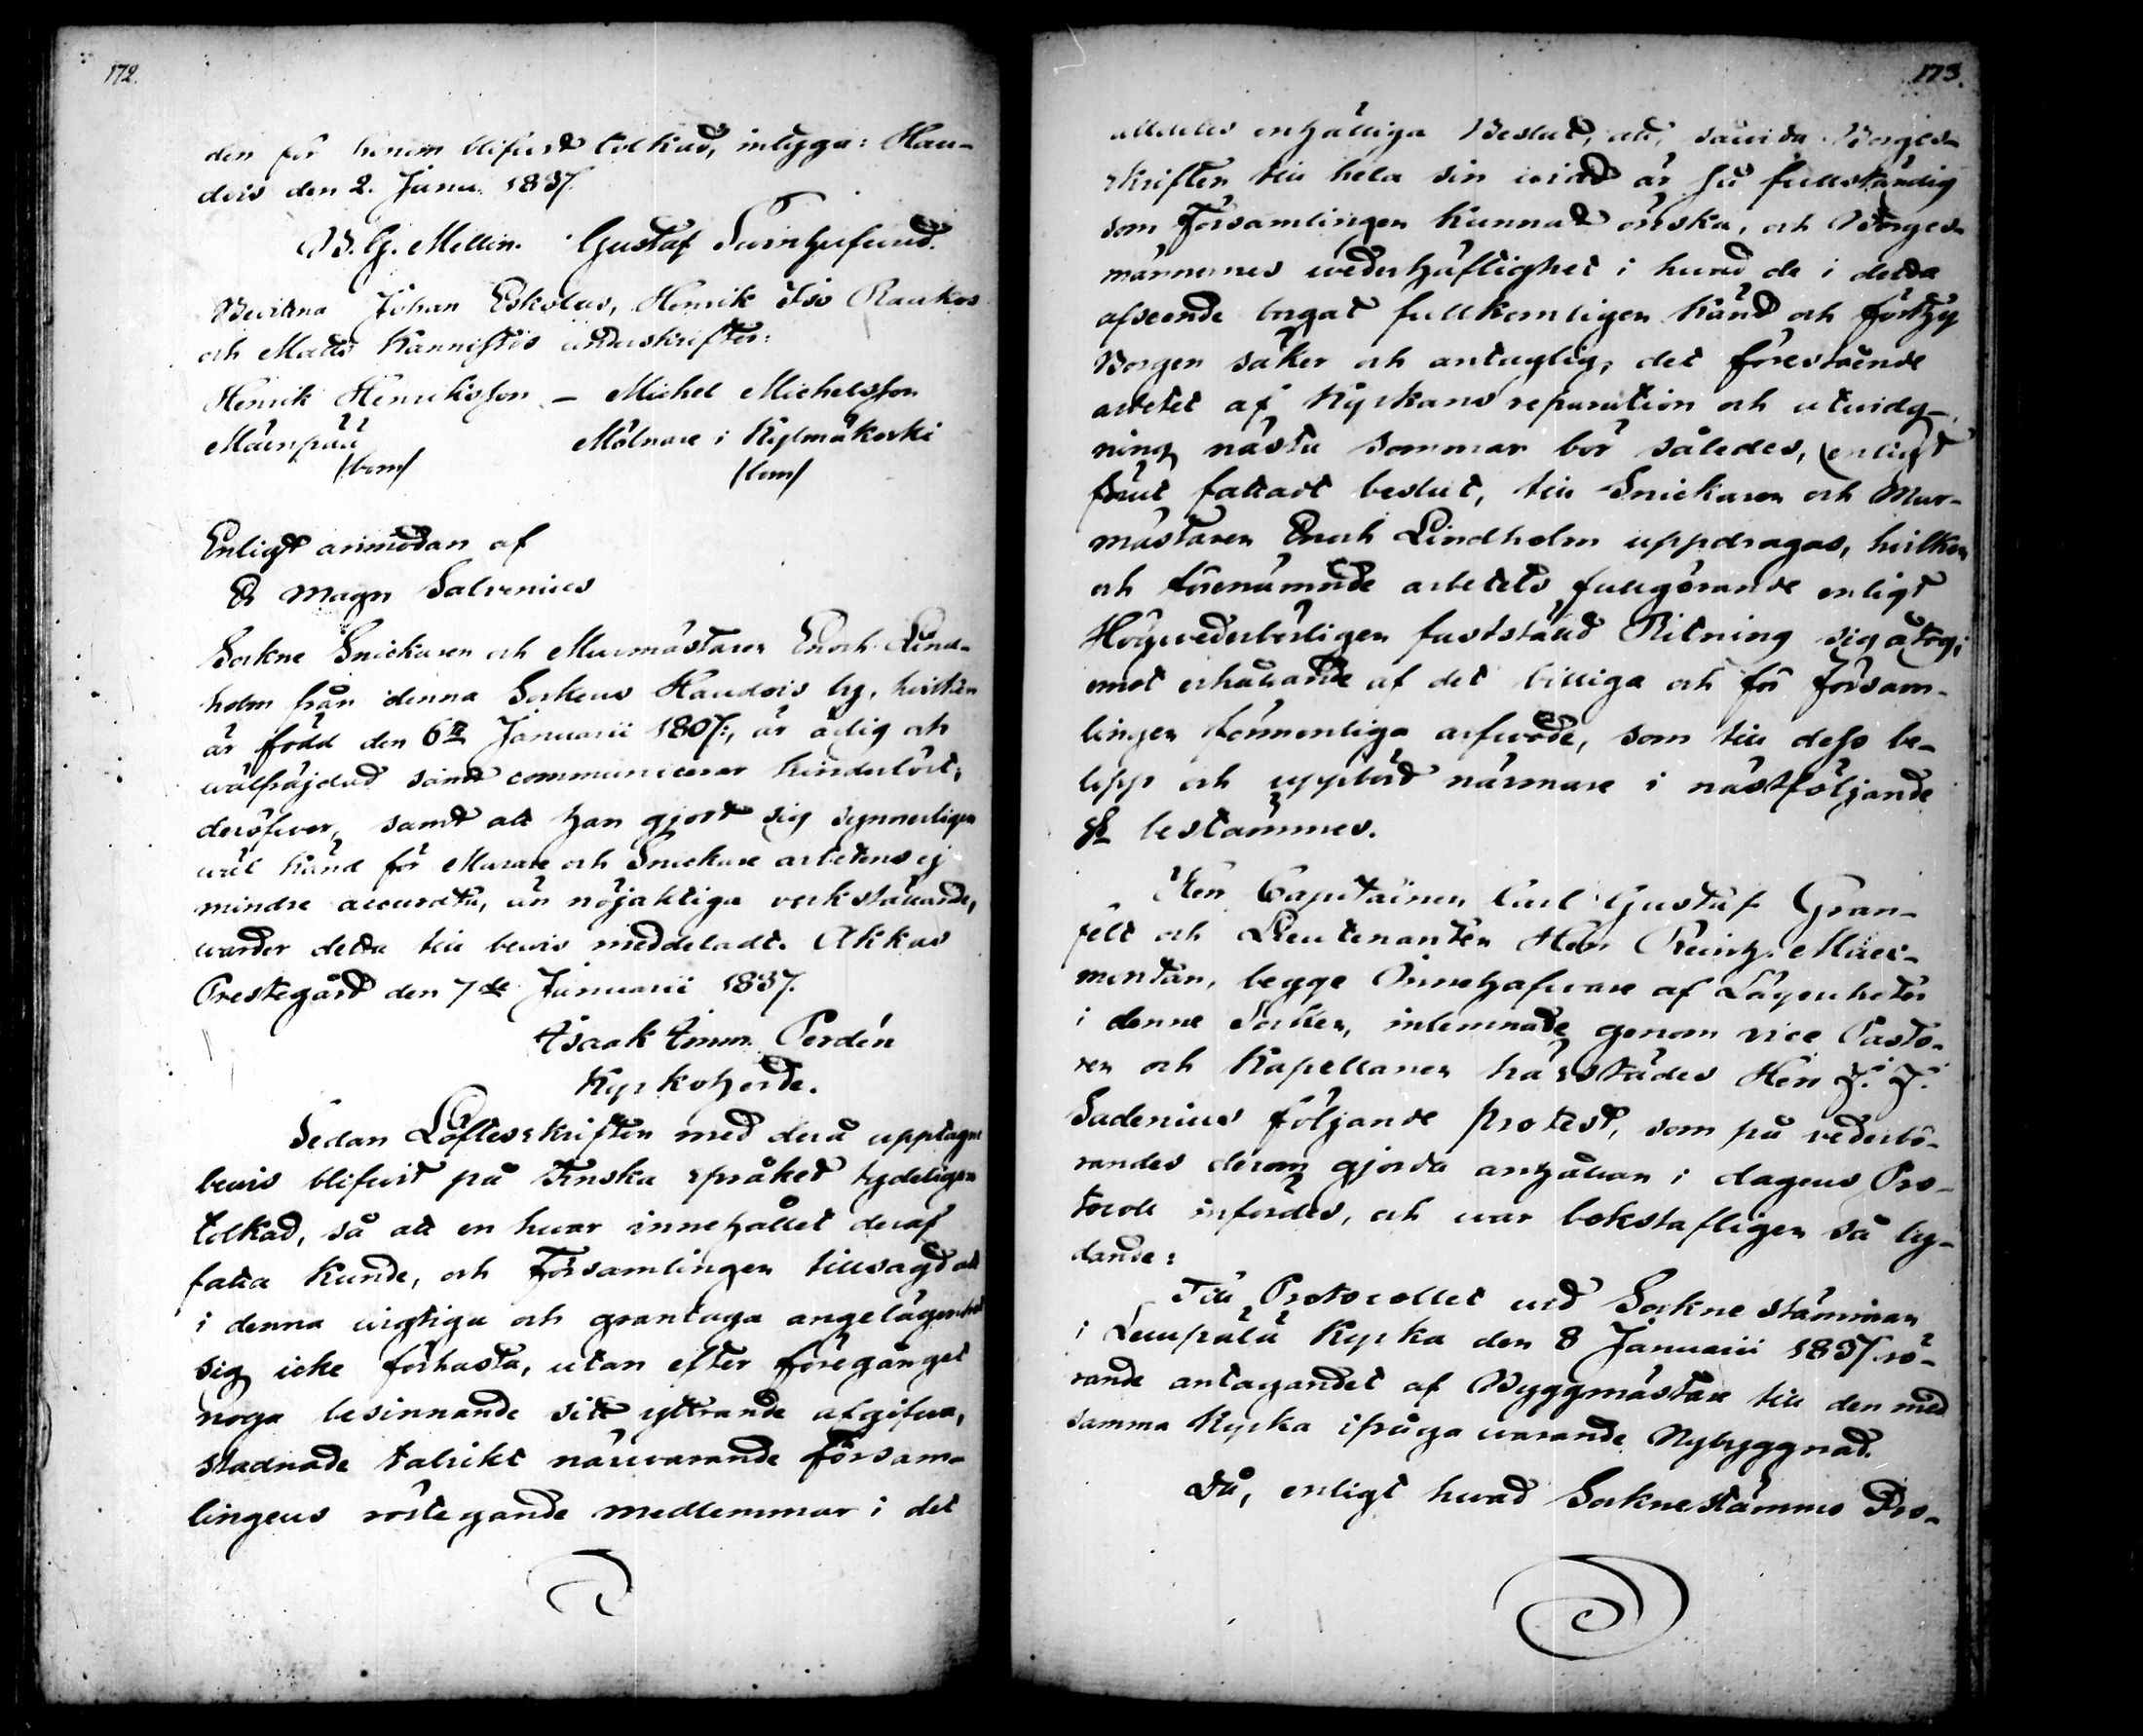 172.
den för honom blifvit tolkad, intyga: Hau-
dois den 2. Janu. 1837.
B. G. Mellin. Gustaf Turnhufvud.
Bevitna Johan Eskolas, Henrik Iso Raukos
och Matts Kannistös underskrifter:
Henrik Henriksson – Michel Michelsson
Mäenpää Mölnare i Kylmäkoski
(bom) (bom)
Enligt anmodan af
Magn Salvenius
Sokne Snickaren och Murmästaren Enoch Lind-
holm från denna Sockens Haudois by, hvilken
är född den 6te Januarii 1807:, är ärlig och
wälfräjdad samt communicerar hinderlöst,
deröfver, samt att han gjort sig synnerligen
wäl känd för Murare och Snickare arbetens ej
mindre accurata, än nöjaktiga verkställande,
warder detta till bewis meddeladt. Akkas
Prestegård den 7de Januarii 1837.
Isaak Imm. Perdén
Kyrkoherde.
Sedan Löftesskriften med derå upptagne
bewis blifvit på Finska språket tydeligen
tolkad, så att en hwar innehållet deraf
fatta kunde, och Församlingen tillsagd att
i denna wigtiga och grantaga angelägenhet
sig icke förhasta, utan efter föregånget
noga besinnande sitt yttrande afgifwa,
stadnade talrikt närwarande Försam-
lingens röstegande medlemmar i det
173.
alldeles enhälliga Beslut, att, såvida Borges-
skriften till hela sin vidd är så fullständig
som Församlingen kunnat önska, och Borges-
männernes wederhäftighet i hwad de i detta
afseende borgat fullkomligen känd och förthy
Borgen säker och antaglig, det förestående
arbetet af Kyrkans reparation och utvidg-
ning nästa sommar bör således, enligt
förut fattadt beslut, till Snickaren och Mur-
mästaren Enoch Lindholm uppdragas, hvilken
och förenämnde arbetets fullgörande enligt
Högvederbörligen fastställd Ritning sig åtog,
emot erhållande af det billiga och för Försam-
lingen förmonliga arfwode, som till dess be-
lopp och uppbörd närmare i nästföljande
§ bestämmes.
Herr Capitainen Carl Gustaf Gran-
felt och Lieutenanten Herr Reinh. Mäex-
montan, begge Innehafware af Lägenheter
i denne Socken, inlemnade genom vice Pasto-
ren och Kapellanen härstädes Herr F. F.
Sadenius följande Protest, som på vederbö-
randes derom gjorda anhållan i dagens Pro-
tocoll infördes, och war bokstafligen så ly-
dande:
Till Protocollet wid Sockne stämman
i Lempälä Kyrka den 8 Januarii 1837. rö-
rande antagandet af Byggmästare till den med
samma Kyrka ifråga warande Nybyggnad.
Då, enligt hwad Sockne stämmo Pro-